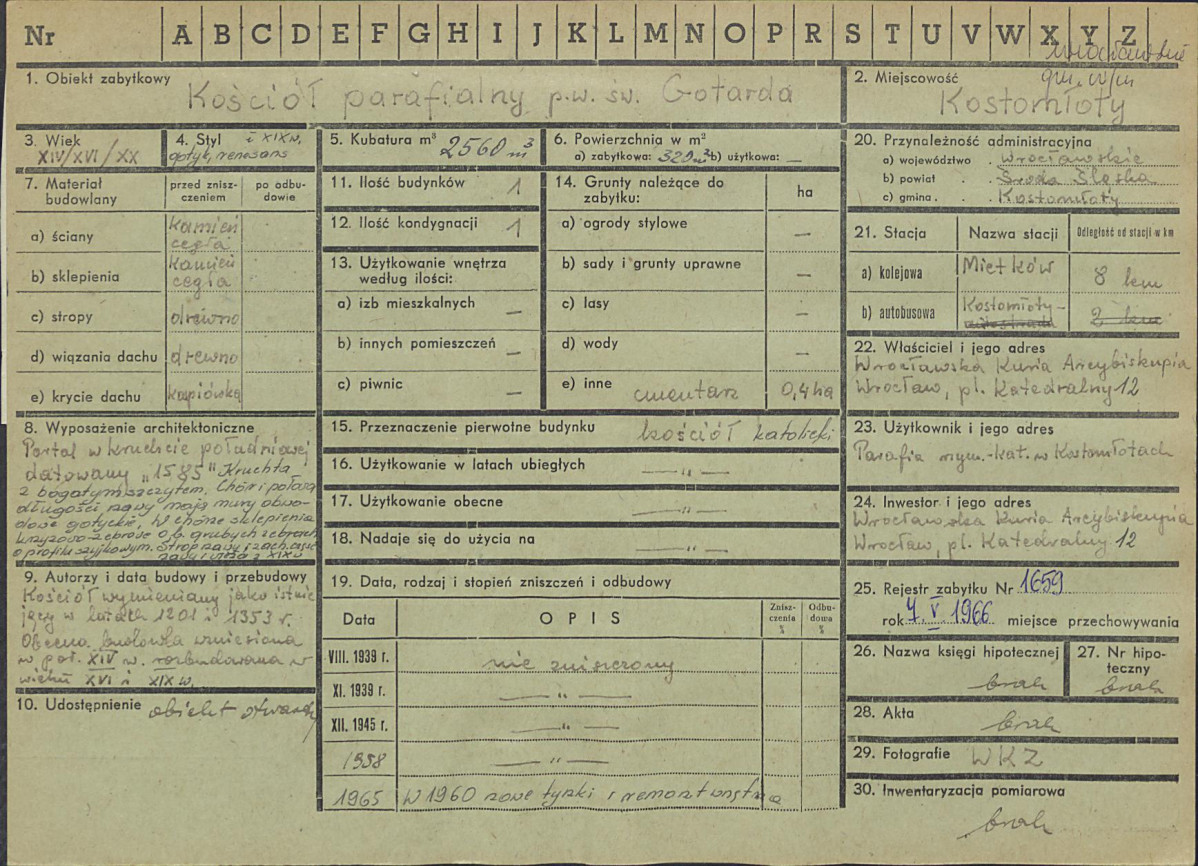 Nr A B C D E F G H I J K L M N O P R S T U V W X Y Z
1. Obiekt zabytkowy
Kościół parafialny p.w. św. Gotarda
2. Miejscowość
gm. w/m
Kostomłoty
3. Wiek
XIV/XVI/XX
4. Styl i XIXw.
gotyk, renesans
5. Kubatura m³ 2560 m³
6. Powierzchnia w m²
a) zabytkowa: 320 m² b) użytkowa: —
7. Materiał budowlany
przed zniszczeniem
po odbudowie
a) ściany
kamień
cegła
b) sklepienia
kamień
cegła
c) stropy drewno
d) wiązania dachu drewno
e) krycie dachu karpiówka
8. Wyposażenie architektoniczne
Portal w kruchcie południowej
datowany „1585" Kruchta
z bogatym szczytem. Chór i połowa
długości nawy mają mury obwo-
dowe gotyckie, W chórze sklepienia
krzyżowo-żebrowe o b. grubych żebrach
o profilu szyjkowym. Strop nawy i zach. część
nawy i wieża z XIX w
9. Autorzy i data budowy i przebudowy
Kościół wymieniany jako istnie
jący w latach 1201 i 1353 r.
Obecna budowla wzniesiona
w poł. XIV w. rozbudowana w
wieku XVI i XIX w.
10. Udostępnienie obiekt otwarty
11. Ilość budynków 1
12. Ilość kondygnacji 1
13. Użytkowanie wnętrza
według ilości:
a) izb mieszkalnych —
b) innych pomieszczeń —
c) piwnic —
14. Grunty należące do
zabytku:
ha
a) ogrody stylowe —
b) sady i grunty uprawne —
c) lasy —
d) wody —
e) inne cmentarz 0,4 ha
15. Przeznaczenie pierwotne budynku kościół katolicki
16. Użytkowanie w latach ubiegłych —„—
17. Użytkowanie obecne —„—
18. Nadaje się do użycia na —„—
19. Data, rodzaj i stopień zniszczeń i odbudowy
Data OPIS Zniszczenia % Odbudowa %
VIII. 1939 r. nie zniszczony
XI. 1939 r. —„—
XII. 1945 r. —„—
1958 —„—
1965 W 1960 nowe tynki i remont wnętrza
20. Przynależność administracyjna
a) województwo . wrocławskie
b) powiat . . Środa Śląska
c) gmina . . Kostomłoty
21. Stacja Nazwa stacji Odległość od stacji w km
a) kolejowa Mietków 8 km
b) autobusowa Kostomłoty- 2 km
22. Właściciel i jego adres
Wrocławska Kuria Arcybiskupia
Wrocław, pl. Katedralny 12
23. Użytkownik i jego adres
Parafia rzym.-kat. w Kostomłotach
24. Inwestor i jego adres
Wrocławska Kuria Arcybiskupia
Wrocław, pl. Katedralny 12
25. Rejestr zabytku Nr 1659
rok 4 V 1966 miejsce przechowywania
26. Nazwa księgi hipotecznej
brak
27. Nr hipo-
teczny
brak
28. Akta
brak
29. Fotografie WKZ
30. Inwentaryzacja pomiarowa
brak